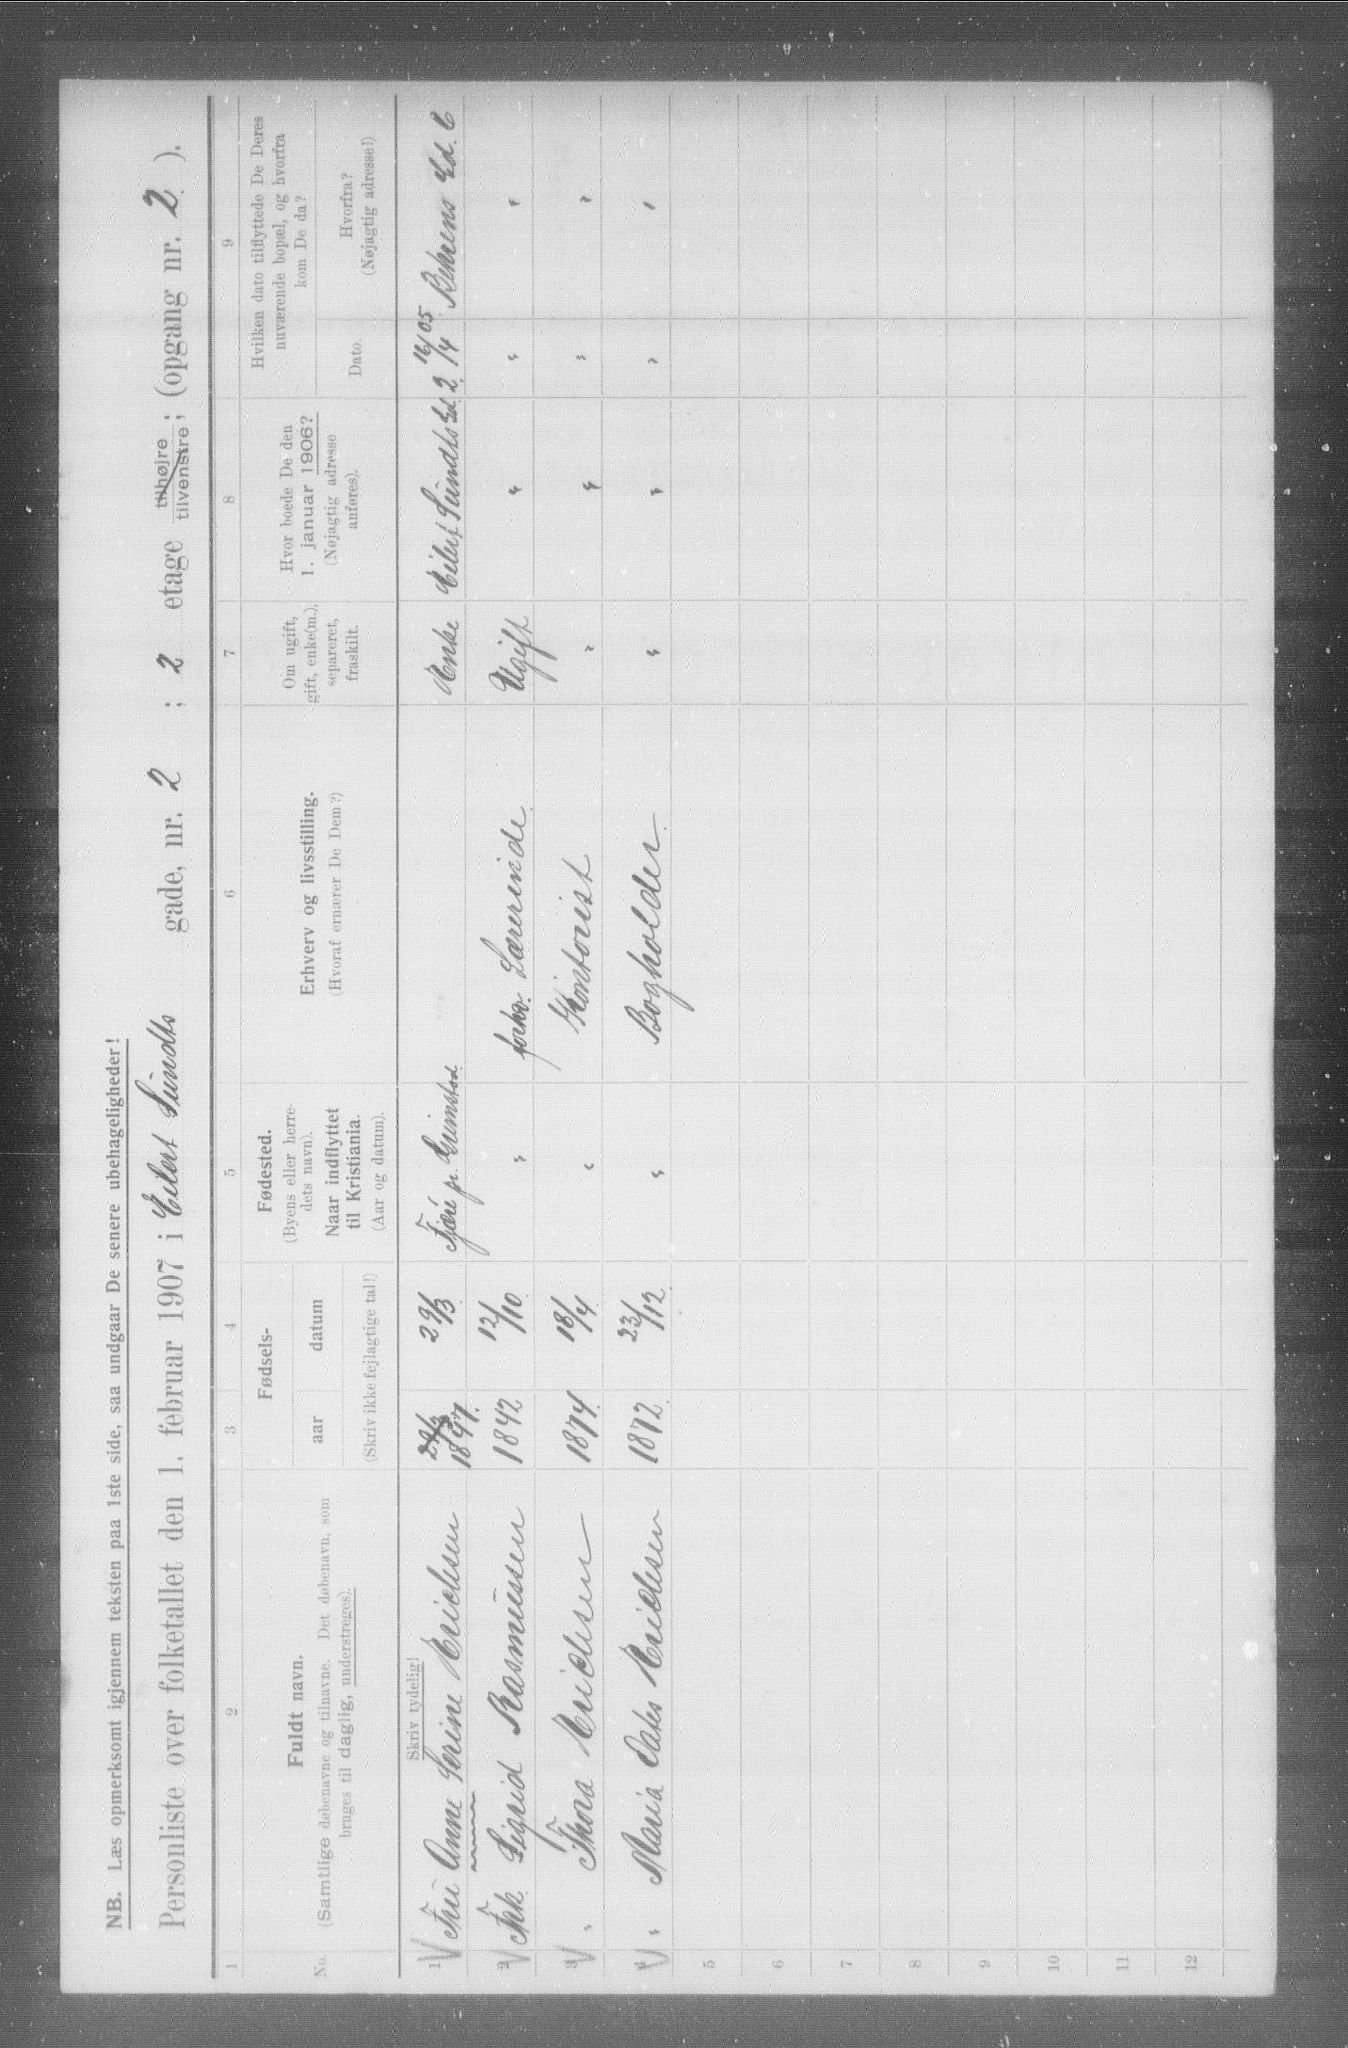 NB. Læs opmerksomt igjennem teksten paa 1ste side, saa undgaar De senere ubehageligheder!
Personliste over folketallet den 1. februar 1907 i Eilert Sundts gade, nr. 2 ; 2 etage tilhøjre tilvenstre ; (opgang nr. 2 ).
1 2 3 4 5 6 7 8 9
No.
Fuldt navn.
(Samtlige døbenavne og tilnavne. Det døbenavn, som
bruges til daglig, understreges).
Fødsels-
aar datum
(Skriv ikke fejlagtige tal!)
Fødested.
(Byens eller herre-
dets navn).
Naar indflyttet
til Kristiania.
(Aar og datum).
Erhverv og livsstilling.
(Hvoraf ernærer De Dem?)
Om ugift,
gift, enke(m.),
separeret,
fraskilt.
Hvor boede De den
1. januar 1906?
(Nøjagtig adresse
anføres).
Hvilken dato tilflyttede De Deres
nuværende bopæl, og hvorfra
kom De da?
Dato.
Hvorfra?
(Nøjagtig adresse!)
Skriv tydelig!
1 Fru Anne Serine Ericksen 29/3 1847. 29/3 Fjære pr. Grimstad Enke Eilert Sundts Gd. 2 16/4 05 Behrens Gd. 6
2 Frk. Sigrid Rasmussen 1842 12/10 " Lærerinde Ugift " " "
3 " Thora Ericksen 1874. 18/4 " Kontorist " " " "
4 " Maria Oaks Ericksen 1872. 23/12 " Bogholder " " " "
5
6
7
8
9
10
11
12